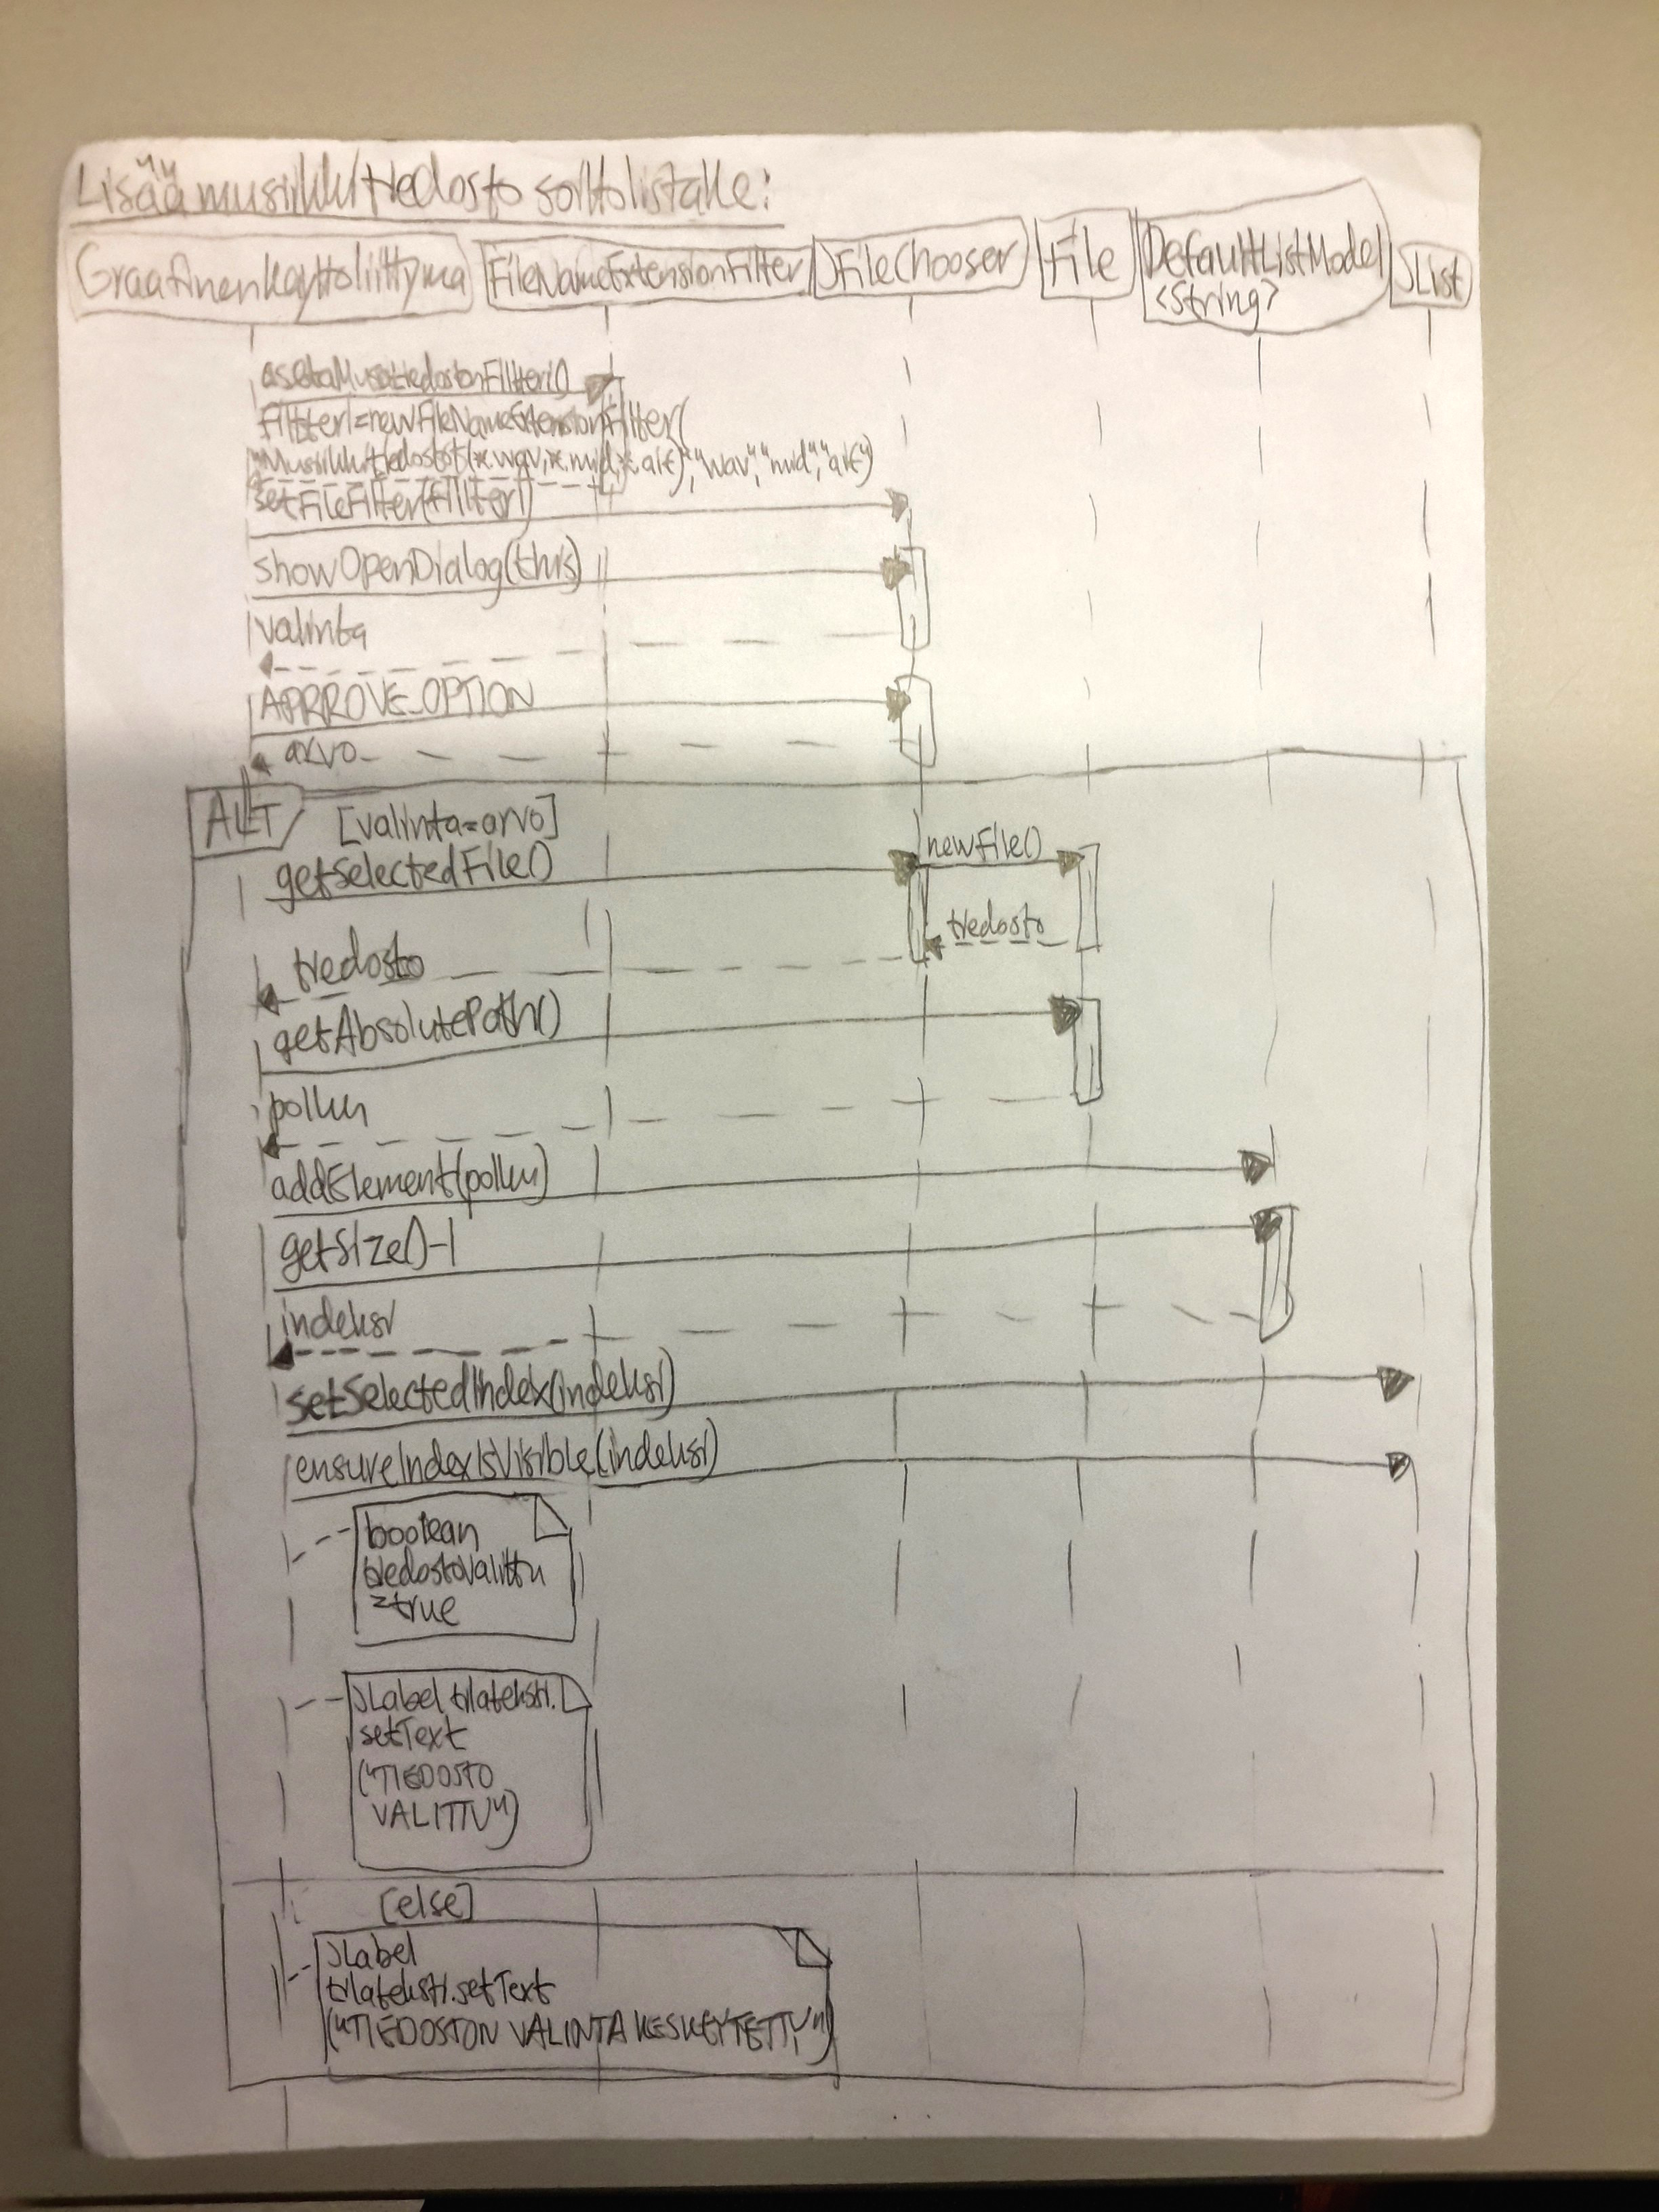 Lisää musiikkitiedosto soittolistalle:
GraafinenKayttoliittyma FileNameExtensionFilter JFileChooser File DefaultListModel JList
<String>
asetaMusatiedostonFiltteri()
Filtteri=newFileNameExtensionFilter(
"Musiikkitiedostot(*.wav,*.mid,*.aif)","wav","mid","aif")
setFileFilter(filtteri)
showOpenDialog(this)
valinta
APRROVE_OPTION
arvo
ALT [valinta=arvo]
getSelectedFile() newFile()
tiedosto
tiedosto
getAbsolutePath()
polku
addElement(polku)
getSize()-1
indeksi
setSelectedIndex(indeksi)
ensureIndexIsVisible(indeksi)
boolean
tiedostoValittu
=true
JLabel tilateksti.
setText
("TIEDOSTO
VALITTU")
[else]
JLabel
tilateksti.setText
("TIEDOSTON VALINTA KESKEYTETTY")